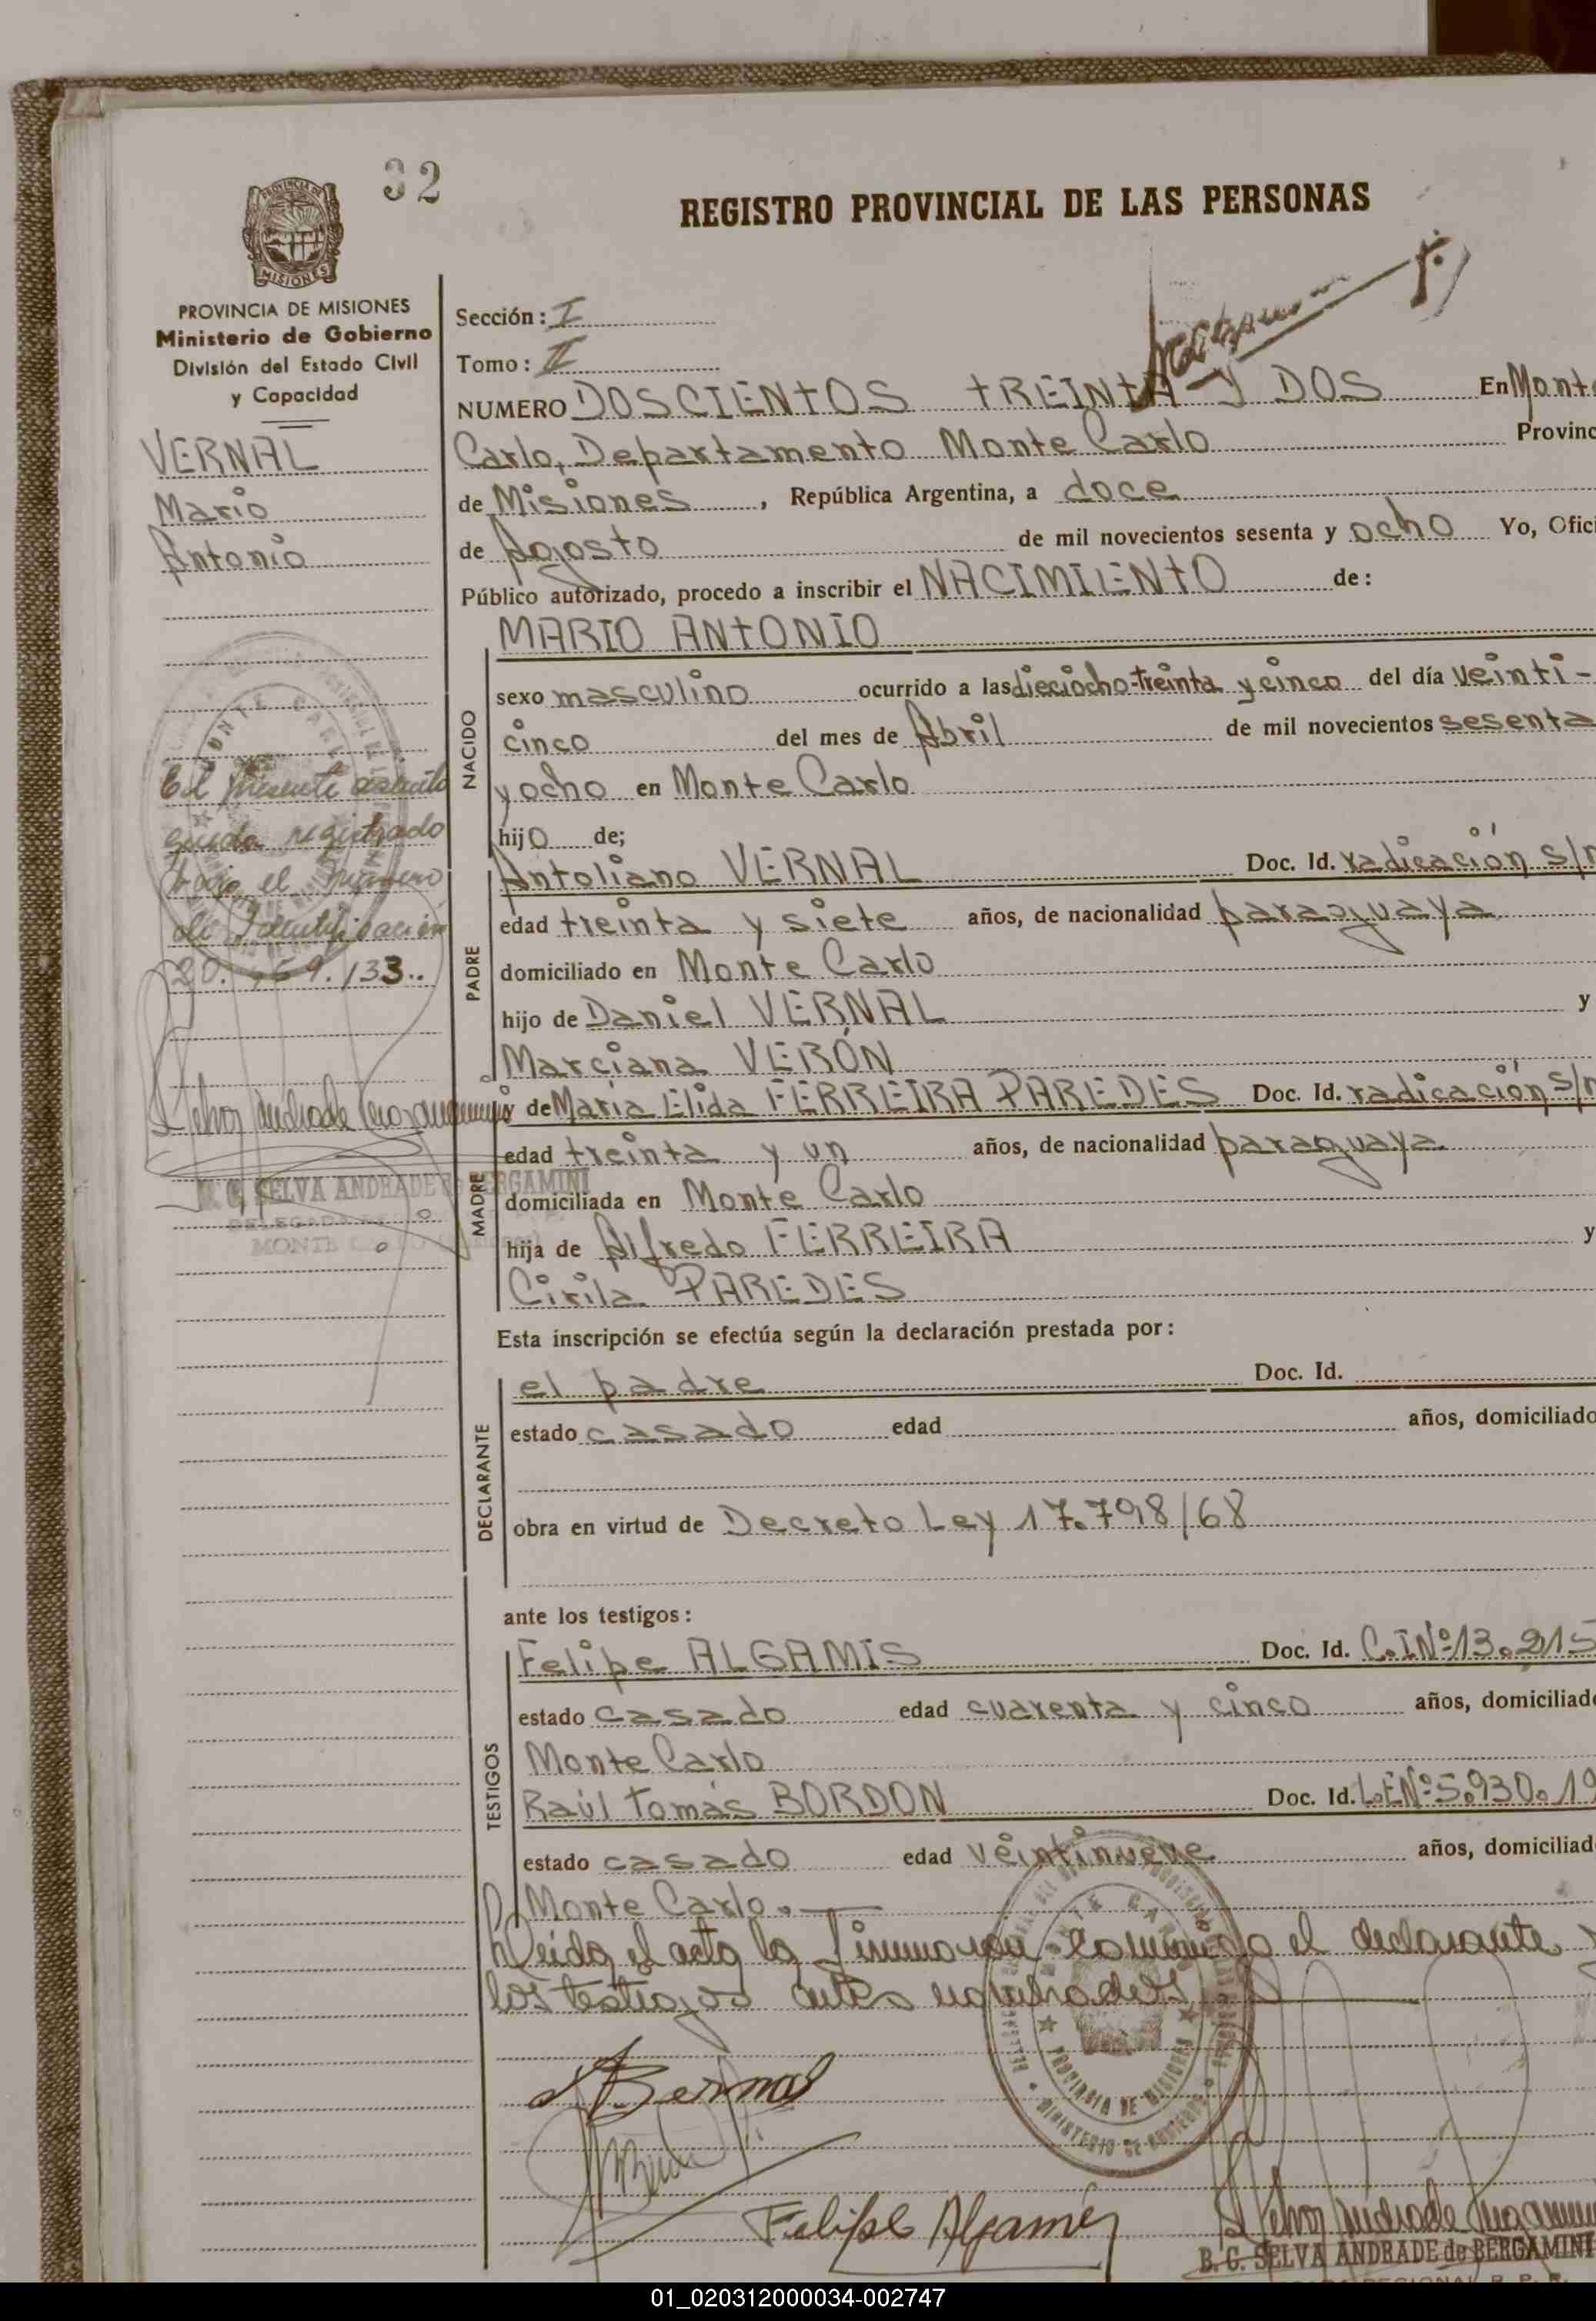 32
PROVINCIA DE
MISIONES
REGISTRO PROVINCIAL DE LAS PERSONAS
PROVINCIA DE MISIONES
Ministerio de Gobierno
División del Estado Civil
y Capacidad
VERNAL
Mario
Antonio
El presente asiento
queda registrado
bajo el número
de Identificación
B. G. SELVA ANDRADE de BERGAMINI
MONTE
Sección: I
Tomo: II
NUMERO DOSCIENTOS TREINTA Y DOS En Monte
Carlo, Departamento Monte Carlo Provinc
de Misiones, República Argentina, a doce
de Agosto de mil novecientos sesenta y ocho Yo, Ofici
Público autorizado, procedo a inscribir el NACIMIENTO de:
NACIDO
MARIO ANTONIO
sexo masculino ocurrido a las dieciocho-treinta y cinco del día veinti-
cinco del mes de Abril de mil novecientos sesenta
y ocho en Monte Carlo
hijo de;
PADRE
Antoliano VERNAL Doc. Id. radicación s/n
edad treinta y siete años, de nacionalidad paraguaya
domiciliado en Monte Carlo
hijo de Daniel VERNAL y
Marciana VERÓN
MADRE
y de María Elida FERREIRA PAREDES Doc. Id. radicación s/n
edad treinta y un años, de nacionalidad paraguaya
domiciliada en Monte Carlo
hija de Alfredo FERREIRA y
Cirila PAREDES
Esta inscripción se efectúa según la declaración prestada por:
DECLARANTE
el padre Doc. Id.
estado casado edad años, domiciliado
obra en virtud de Decreto Ley 17.798/68
ante los testigos:
TESTIGOS
Felipe ALGAMIS Doc. Id. C.I.Nº 13.215
estado casado edad cuarenta y cinco años, domiciliad
Monte Carlo
Raúl Tomás BORDON Doc. Id. L.E.Nº 5.930.19
estado casado edad veintinueve años, domiciliad
Monte Carlo.
Leída el acta la firmaron conmigo el declarante y
los testigos antes nombrados
MONTE CARLO
PROVINCIA DE MISIONES
MINISTERIO DE GOBIERNO
Bernal
Felipe Algamis
B. G. SELVA ANDRADE de BERGAMINI
01_020312000034-002747